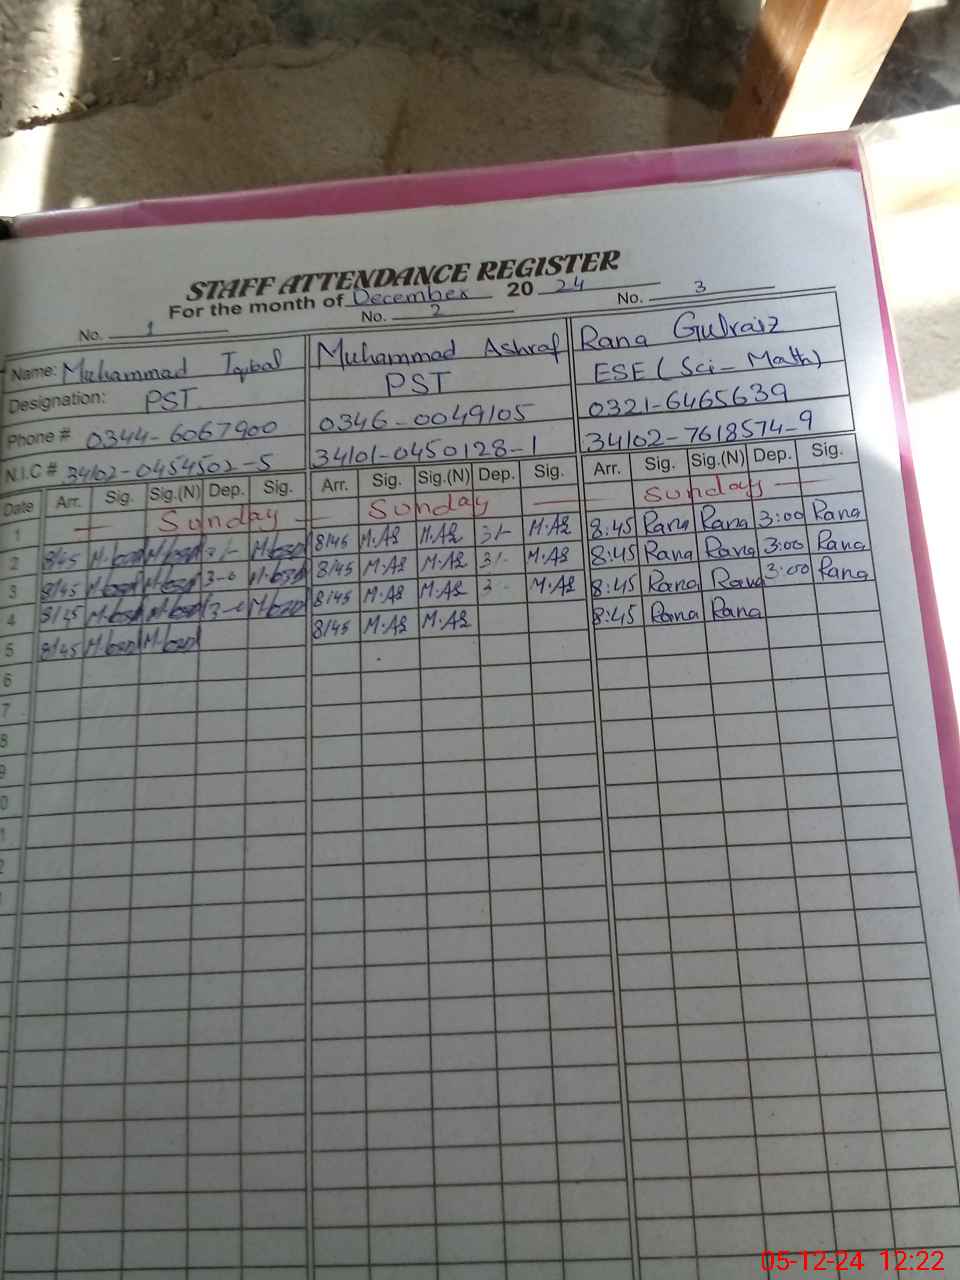 STAFF ATTENDANCE REGISTER
For the month of December 2024
No. 1 No. 2 No. 3
Name: Muhammad Iqbal Muhammad Ashraf Rana Gulraiz
Designation: PST PST ESE (Sci-Math)
Phone # 0344-6067900 0346-0049105 0321-6465639
N.I.C # 34102-0454502-5 34101-0450128-1 34102-7618574-9
Date Arr. Sig. Sig.(N) Dep. Sig. Arr. Sig. Sig.(N) Dep. Sig. Arr. Sig. Sig.(N) Dep. Sig.
1 Sunday Sunday Sunday
2 8/45 8/45 M.AS M.AS 3/- M.AS 8:45 Rana Rana 3:00 Rana
3 8/45 3-0 8/45 M.AS M.AS 3/- M.AS 8:45 Rana Rana 3:00 Rana
4 8/45 3-0 8/45 M.AS M.AS 3- M.AS 8:45 Rana Rana 3:00 Rana
5 8/45 8/45 M.AS M.AS 8:45 Rana Rana
6
7
8
9
0
1
2
05-12-24 12:22